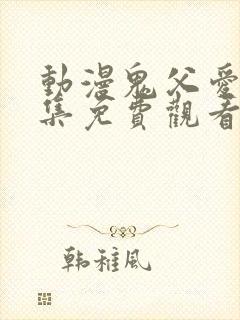 動漫鬼父愛
集免費觀看
韩稚風